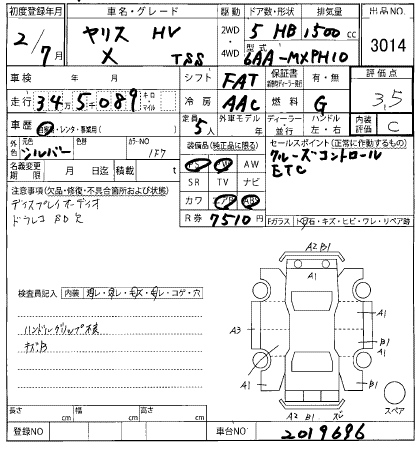 初度登録年月 車名・グレード 駆動 ドア数・形状 排気量 出品NO.
2/7月 ヤリス HV 2WD 5 HB 1500cc
X TSS 4WD 型式 6AA-MXPH10 3014
車検 年 月 シフト FAT 保証書 有・無 評価点
走行 34万5089 キロ・マイル 冷房 AAC 燃料 G 3.5
車歴 自家用・レンタ・事業用( ) 定員 5人 外車モデル 年 ディーラー 並行 ハンドル 左・右 内装評価 C
外色 元色 シルバー 色替 カラーNO 1F7 装備品(純正品に限る) セールスポイント(正常に作動するもの)
クルーズコントロール
名義変更期限 月 日迄 積載 t AW ETC
SR TV ナビ
注意事項(欠品・修復・不具合箇所および状態) カワ
ディスプレイオーディオ R券 7510円 Fガラス 石・キズ・ヒビ・ワレ・リペア跡
ドラレコ SD欠
A2 B1
A1
検査員記入 内装 コゲ・穴
A1
A3 B1
キズB A1
長さ cm 幅 cm 高さ cm A2 B1 スペア
登録NO 車台NO 2019696